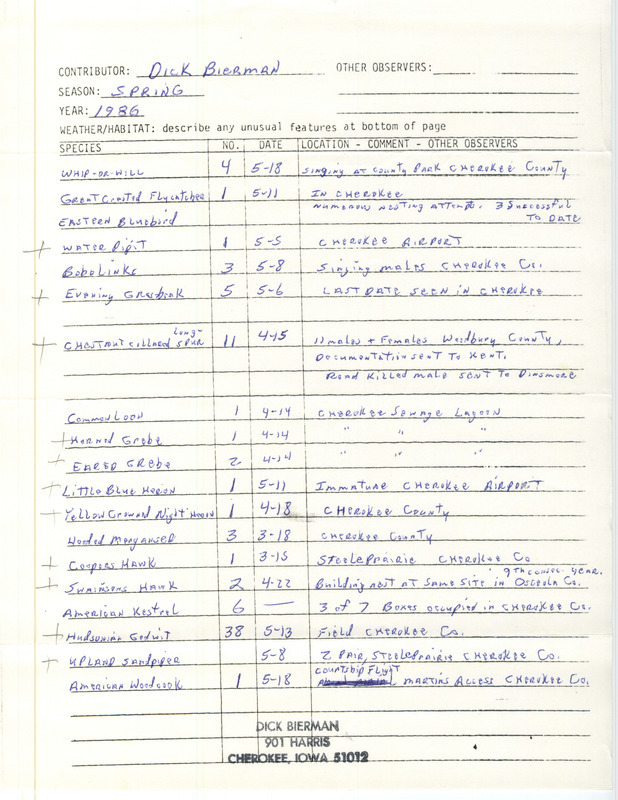 CONTRIBUTOR: DICK BIERMAN OTHER OBSERVERS:
SEASON: SPRING
YEAR: 1986
WEATHER/HABITAT: describe any unusual features at bottom of page
SPECIES NO. DATE LOCATION - COMMENT - OTHER OBSERVERS
WHIP-OR-WILL 4 5-18 Singing at County Park CHEROKEE County
Great Crested Flycatcher 1 5-11 IN CHEROKEE
EASTERN Bluebird numerous nesting attempts. 3 Successful
TO DATE
+ WATER PIPIT 1 5-5 CHEROKEE AIRPORT
BoboLinks 3 5-8 Singing males CHEROKEE Co.
+ Evening Grosbeak 5 5-6 LAST DATE SEEN IN CHEROKEE
Long-
+ CHESTNUT collared SPUR 11 4-15 11 males + Females Woodbury County,
Documentation sent To KENT.
Road Killed male SENT TO DINSMORE
Common Loon 1 4-14 CHEROKEE Sewage Lagoon
+ Horned Grebe 1 4-14 " " "
+ EARED GREBE 2 4-14 " " "
+ Little Blue Heron 1 5-11 Immature CHEROKEE AIRPORT
+ Yellow Crowned Night Heron 1 4-18 CHEROKEE County
Hooded Merganser 3 3-18 CHEROKEE County
+ Coopers HAWK 1 3-15 STEELE PRAIRIE CHEROKEE Co
9th consec. year.
+ SWAINSONS HAWK 2 4-22 Building nest at Same Site in Osceola Co.
AMERICAN KESTREL 6 — 3 of 7 Boxes occupied in CHEROKEE Co.
+ Hudsonian Godwit 38 5-13 Field CHEROKEE Co.
+ UPLAND SANDPIPER 5-8 2 PAIR, STEELE PRAIRIE CHEROKEE Co.
Courtship Flight
American Woodcock 1 5-18 MARTINS ACCESS CHEROKEE Co.
DICK BIERMAN
901 HARRIS
CHEROKEE, IOWA 51012